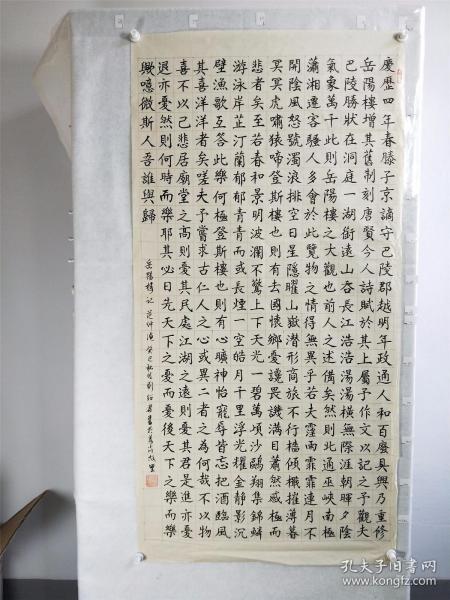 慶歷四年春滕子京謫守巴陵郡越明年政通人和百廢具興乃重修
岳陽樓增其舊制刻唐賢今人詩賦於其上屬予作文以記之予觀夫
巴陵勝狀在洞庭一湖銜遠山吞長江浩浩湯湯橫無際涯朝暉夕陰
氣象萬千此則岳陽樓之大觀也前人之述備矣然則北通巫峽南極
瀟湘遷客騷人多會於此覽物之情得無異乎若夫霪雨霏霏連月不
開陰風怒號濁浪排空日星隱曜山嶽潛形商旅不行檣傾楫摧薄暮
冥冥虎嘯猿啼登斯樓也則有去國懷鄉憂讒畏譏滿目蕭然感極而
悲者矣至若春和景明波瀾不驚上下天光一碧萬頃沙鷗翔集錦鱗
游泳岸芷汀蘭郁郁青青而或長煙一空皓月千里浮光耀金靜影沉
璧漁歌互答此樂何極登斯樓也則有心曠神怡寵辱皆忘把酒臨風
其喜洋洋者矣嗟夫予嘗求古仁人之心或異二者之為何哉不以物
喜不以己悲居廟堂之高則憂其民處江湖之遠則憂其君是進亦憂
退亦憂然則何時而樂耶其必曰先天下之憂而憂後天下之樂而樂
歟噫微斯人吾誰與歸
岳陽樓記 范仲淹 癸巳秋
孔夫子旧书网